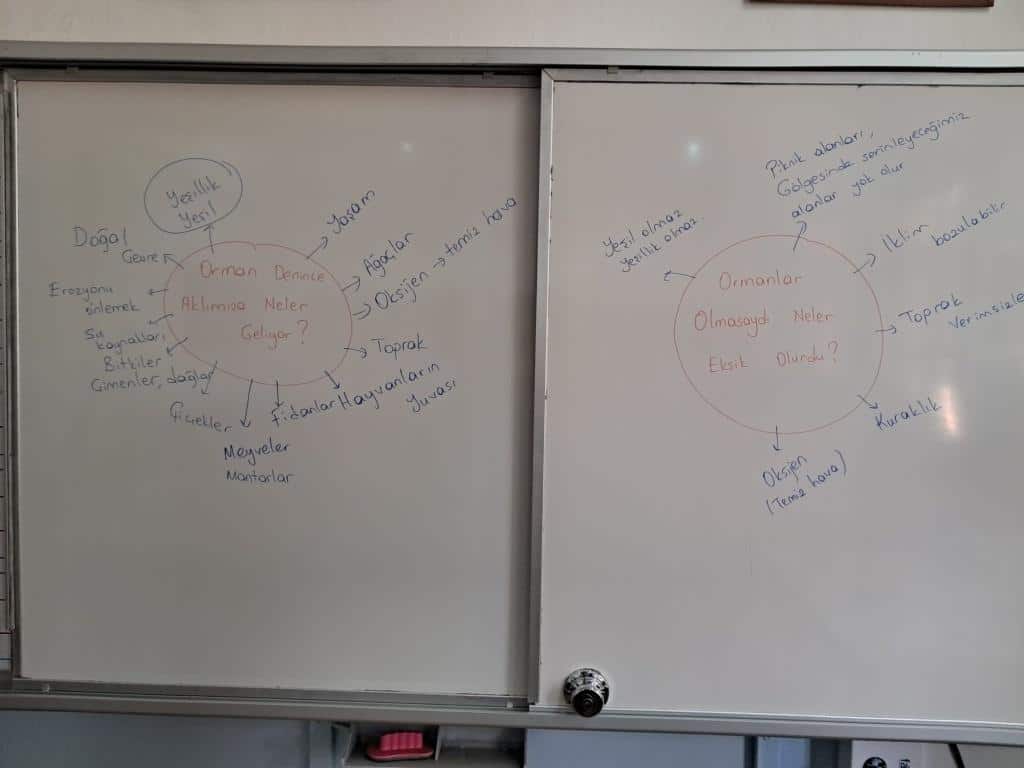 Orman Denince
Aklımıza Neler
Geliyor?
Yeşillik
Yeşil
Yaşam
Ağaçlar
Oksijen → temiz hava
Toprak
Hayvanların
Yuvası
Fidanlar
Meyveler
Mantarlar
Çiçekler
Bitkiler
Çimenler, dağlar
Su
kaynakları
Erozyonu
önlemek
Doğal
Çevre
Ormanlar
Olmasaydı Neler
Eksik Olurdu?
Yeşil olmaz
yeşillik olmaz.
Piknik alanları,
Gölgesinde serinleyeceğimiz
alanlar yok olur
İklim
bozulabilir
Toprak
Verimsizle
Kuraklık
Oksijen
(Temiz hava)